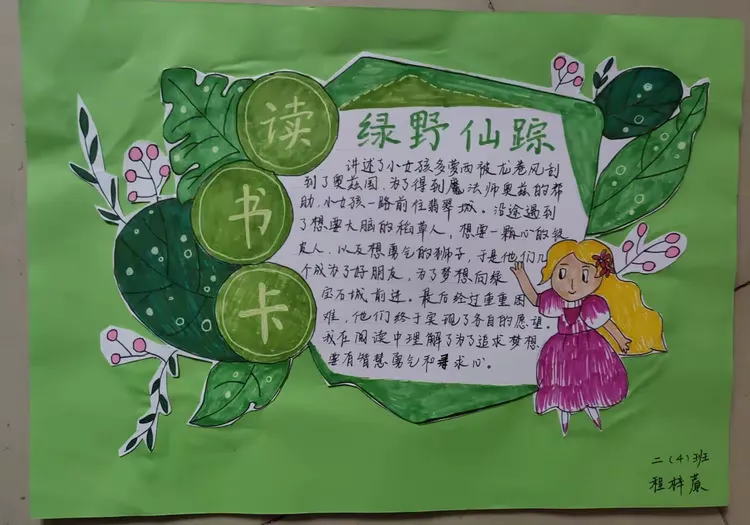 读
书
卡
绿野仙踪
讲述了小女孩多萝西被龙卷风刮
到了奥兹国,为了得到魔法师奥兹的帮
助,小女孩一路前往翡翠城。沿途遇到
了想要大脑的稻草人,想要一颗心的铁
皮人,以及想要勇气的狮子,于是他们几
个成为了好朋友,为了梦想向绿
宝石城前进。最后经过重重困
难,他们终于实现了各自的愿望。
我在阅读中理解了为了追求梦想
要有智慧勇气和寻求心。
二(4)班
程梓